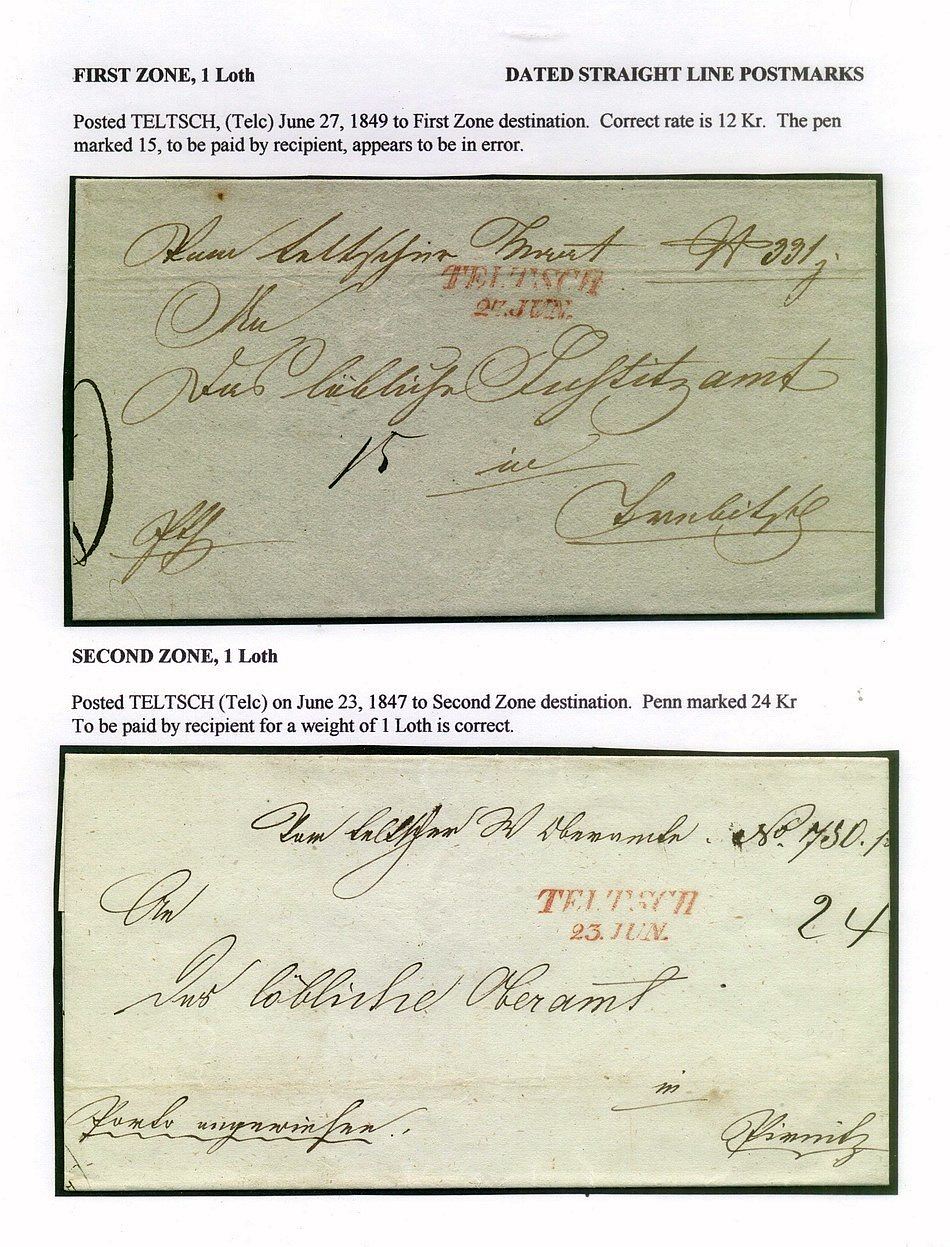 FIRST ZONE, 1 Loth
DATED STRAIGHT LINE POSTMARKS
Posted TELTSCH, (Telc) June 27, 1849 to First Zone destination. Correct rate is 12 Kr. The pen
marked 15, to be paid by recipient, appears to be in error.
Vom teltscher
TELTSCH
27. JUN.
An
Das löbliche Justitzamt
15
in
SECOND ZONE, 1 Loth
Posted TELTSCH (Telc) on June 23, 1847 to Second Zone destination. Penn marked 24 Kr
To be paid by recipient for a weight of 1 Loth is correct.
Vom teltscher W Oberamte. No. 730.
An
TELTSCH
23. JUN.
24
Das löbliche Oberamt
in
Porto angewiesen.
Pirnitz